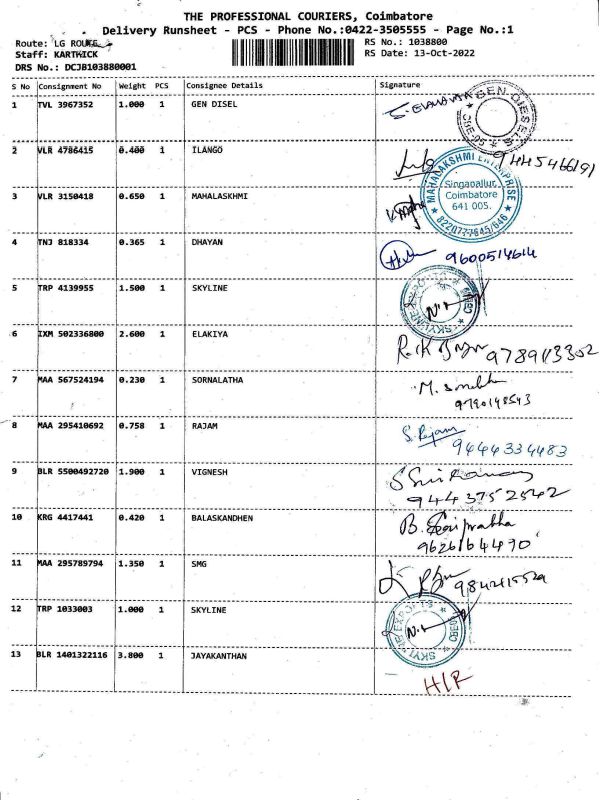 THE PROFESSIONAL COURIERS, Coimbatore
Delivery Runsheet - PCS - Phone No.:0422-3505555 - Page No.:1
Route: LG ROUTE
Staff: KARTHICK
DRS No.: DCJB103880001
RS No.: 1038800
RS Date: 13-Oct-2022
S No Consignment No Weight PCS Consignee Details Signature
1 TVL 3967352 1.000 1 GEN DISEL
2 VLR 4786415 0.400 1 ILANGO 9445466191
3 VLR 3150418 0.650 1 MAHALASKHMI
MAHALAKSHMI ENTERPRISE
Singanallur,
Coimbatore
641 005.
8220777645/646
4 TNJ 818334 0.365 1 DHAYAN 9600514614
5 TRP 4139955 1.500 1 SKYLINE
6 IXM 502336800 2.600 1 ELAKIYA 9789113302
7 MAA 567524194 0.230 1 SORNALATHA
9790148543
8 MAA 295410692 0.758 1 RAJAM S. Rajam
9444334483
9 BLR 5500492720 1.900 1 VIGNESH
9443752542
10 KRG 4417441 0.420 1 BALASKANDHEN
9626164490
11 MAA 295789794 1.350 1 SMG
12 TRP 1033003 1.000 1 SKYLINE
13 BLR 1401322116 3.800 1 JAYAKANTHAN H/R